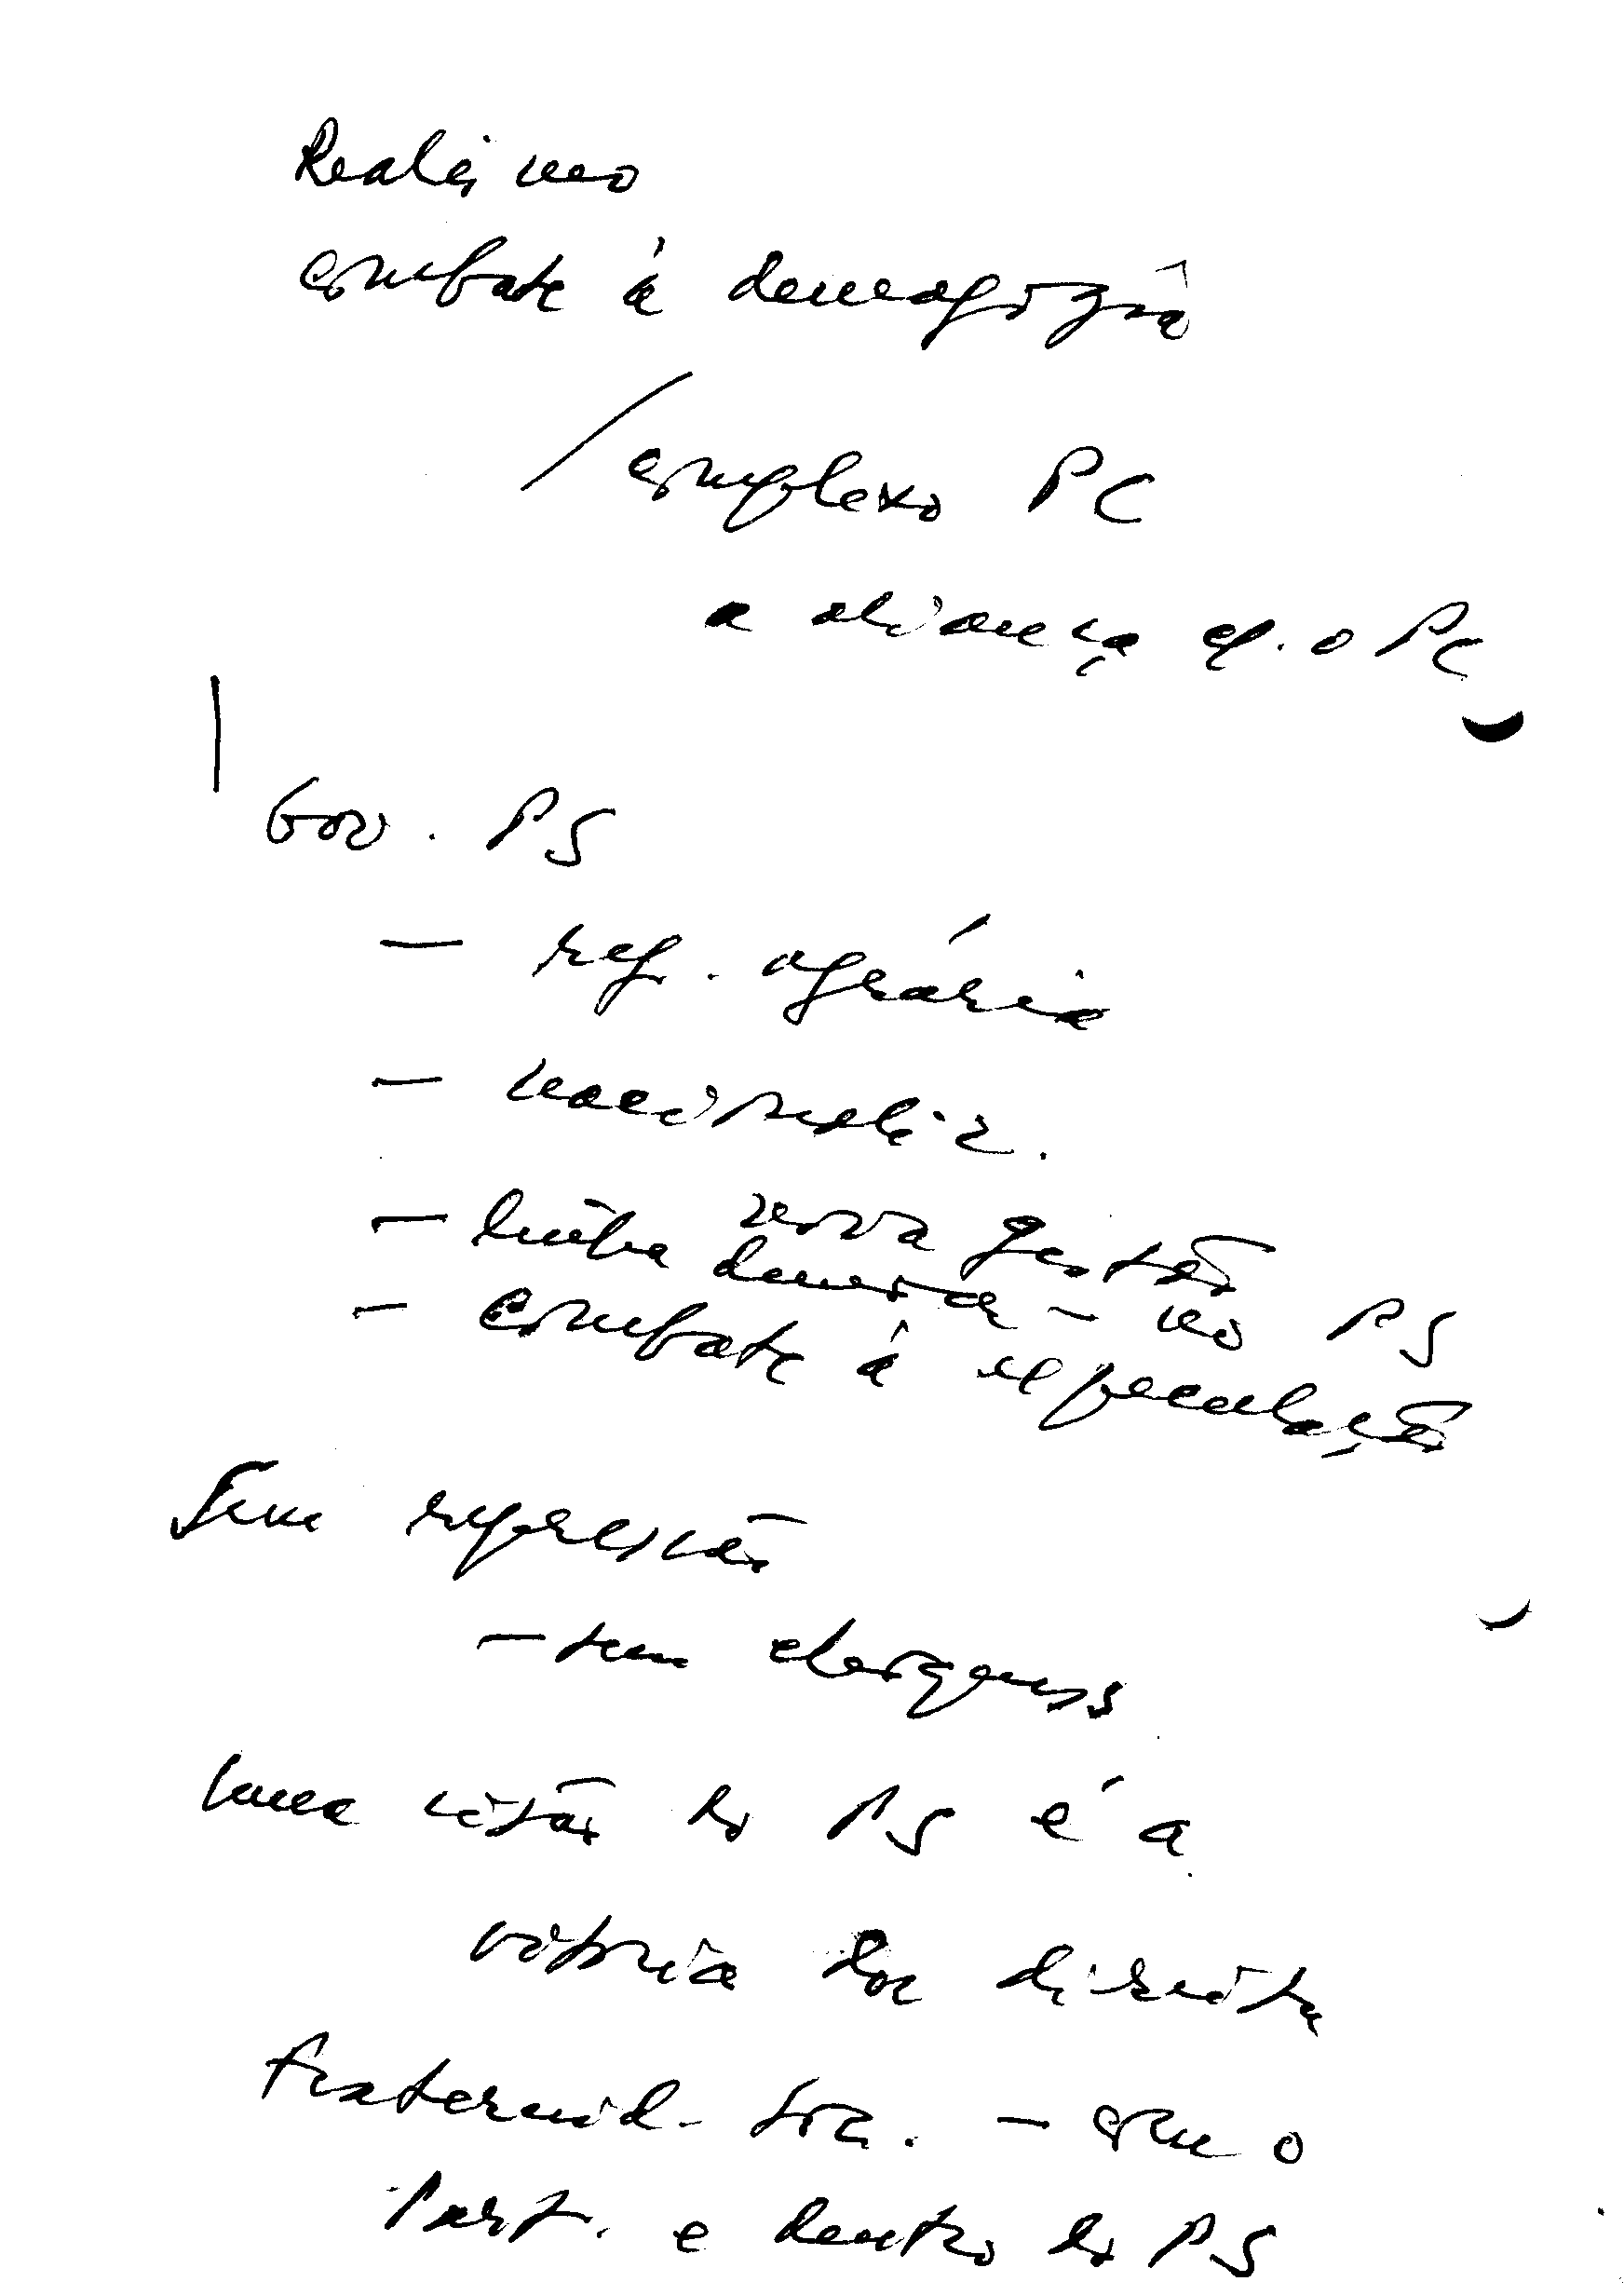 Realismo
combate à demagogia
/ complexo PC
a aliança c/. o PC
Gov. PS
— ref. agrária
— nacionaliz.
nova gestão
— linha democr — no PS
— combate à especulação
Sem repressão
— sem
uma cisão do PS é a
vitória da direita
fraternid. soc. — com o
Part. e dentro do PS